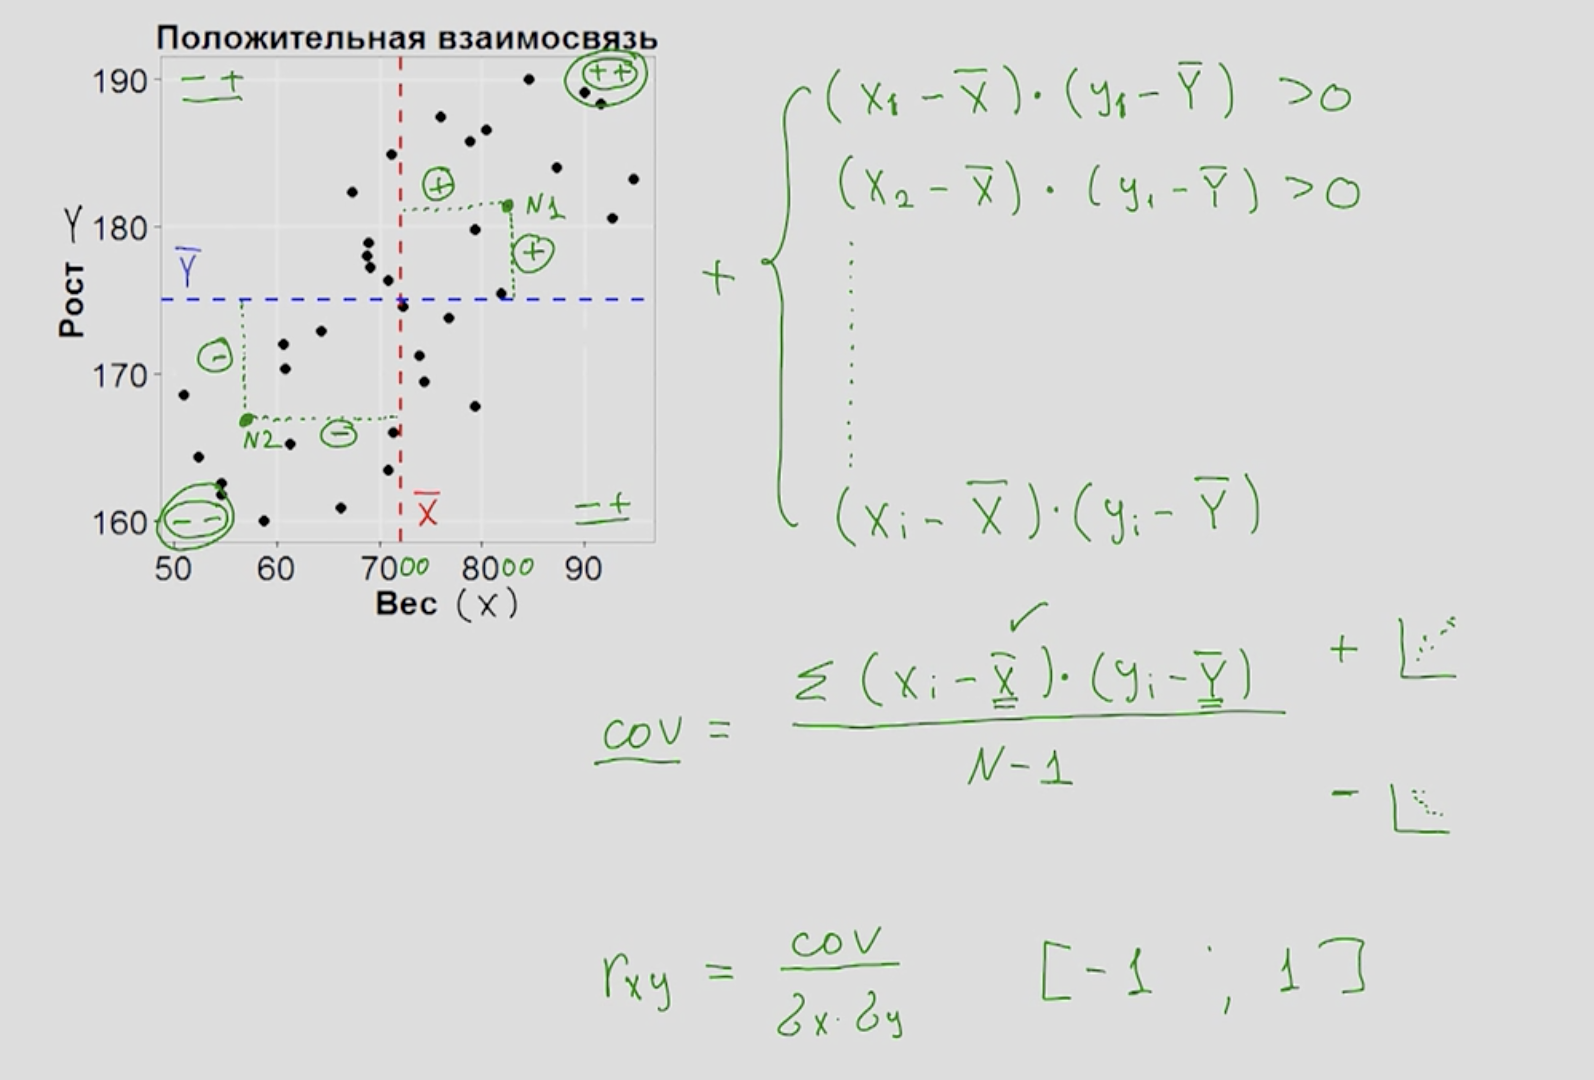 Положительная взаимосвязь
190
180
170
160
Рост Y
- +
++
+
N1
+
Y̅
-
N2
-
- -
X̅
- +
50 60 7000 8000 90
Вес (X)
+
(x₁ - X̅) · (y₁ - Y̅) >0
(x₂ - X̅) · (y₁ - Y̅) >0
(xᵢ - X̅) · (yᵢ - Y̅)
cov = Σ (xᵢ - X̅) · (yᵢ - Y̅)
N-1
+
-
rxy = cov [-1 ; 1]
δx · δy